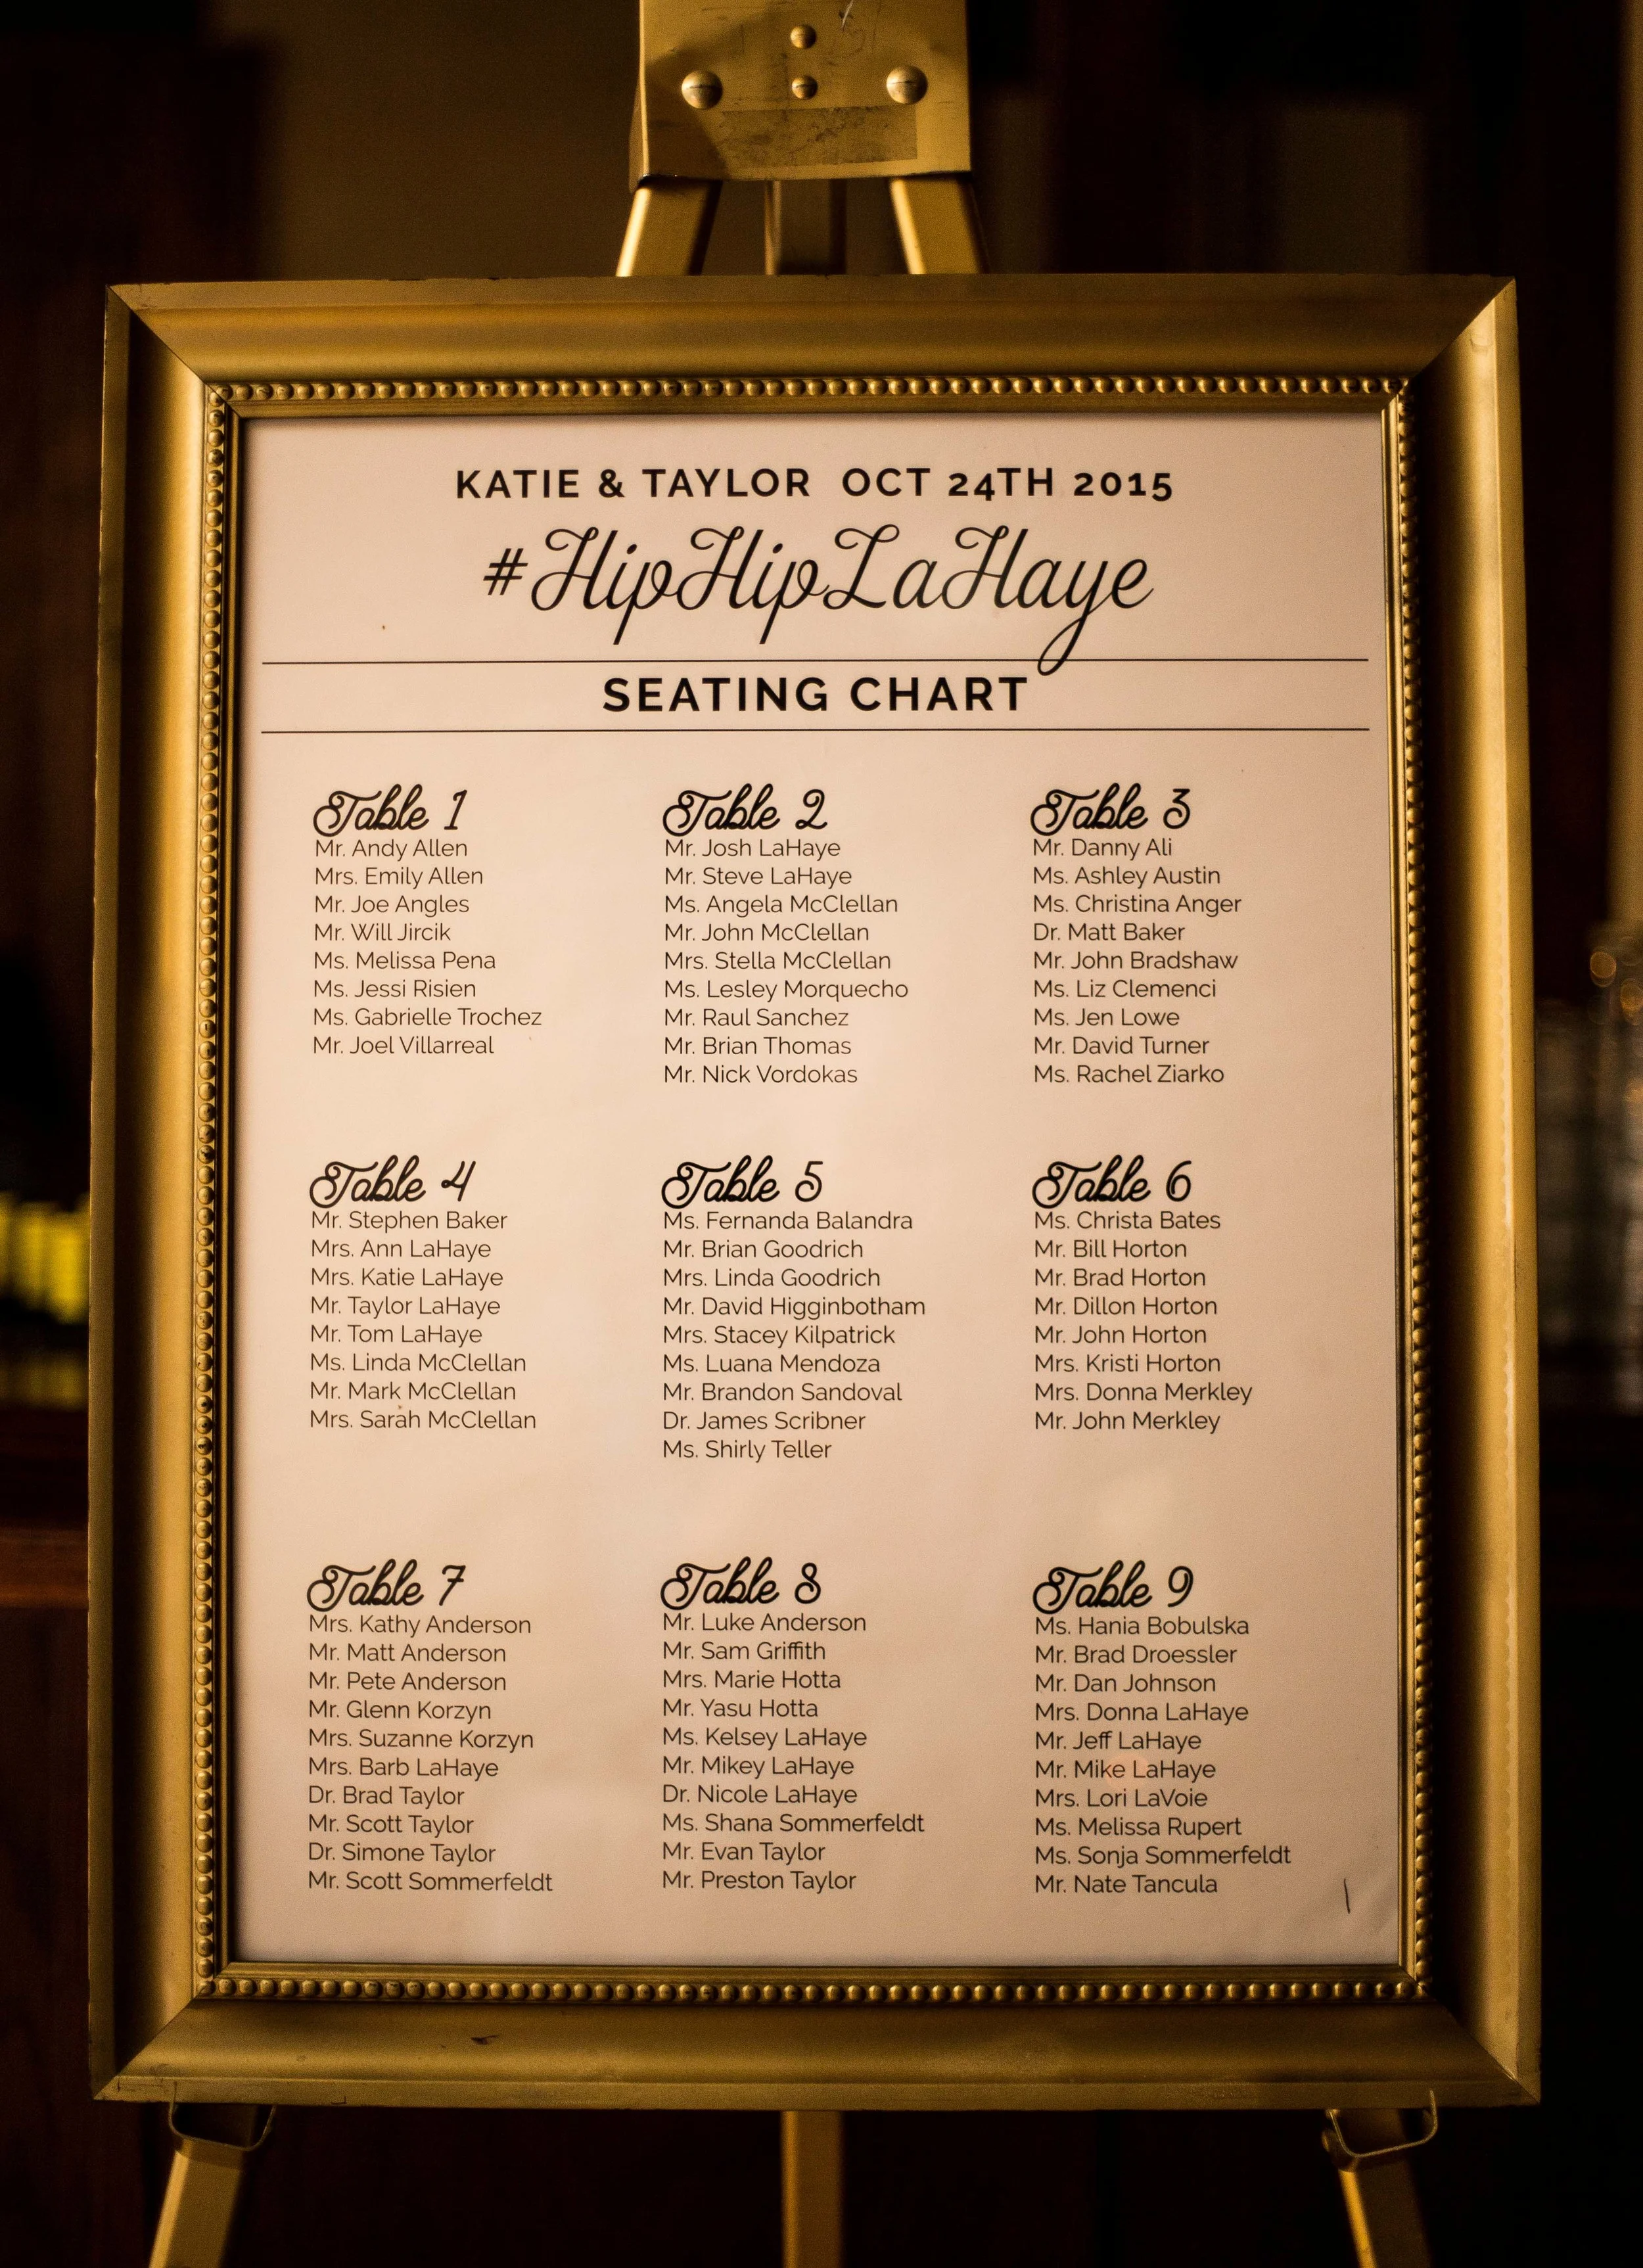 KATIE & TAYLOR OCT 24TH 2015
#HipHipLaHaye
SEATING CHART
Table 1
Mr. Andy Allen
Mrs. Emily Allen
Mr. Joe Angles
Mr. Will Jircik
Ms. Melissa Pena
Ms. Jessi Risien
Ms. Gabrielle Trochez
Mr. Joel Villarreal
Table 2
Mr. Josh LaHaye
Mr. Steve LaHaye
Ms. Angela McClellan
Mr. John McClellan
Mrs. Stella McClellan
Ms. Lesley Morquecho
Mr. Raul Sanchez
Mr. Brian Thomas
Mr. Nick Vordokas
Table 3
Mr. Danny Ali
Ms. Ashley Austin
Ms. Christina Anger
Dr. Matt Baker
Mr. John Bradshaw
Ms. Liz Clemenci
Ms. Jen Lowe
Mr. David Turner
Ms. Rachel Ziarko
Table 4
Mr. Stephen Baker
Mrs. Ann LaHaye
Mrs. Katie LaHaye
Mr. Taylor LaHaye
Mr. Tom LaHaye
Ms. Linda McClellan
Mr. Mark McClellan
Mrs. Sarah McClellan
Table 5
Ms. Fernanda Balandra
Mr. Brian Goodrich
Mrs. Linda Goodrich
Mr. David Higginbotham
Mrs. Stacey Kilpatrick
Ms. Luana Mendoza
Mr. Brandon Sandoval
Dr. James Scribner
Ms. Shirly Teller
Table 6
Ms. Christa Bates
Mr. Bill Horton
Mr. Brad Horton
Mr. Dillon Horton
Mr. John Horton
Mrs. Kristi Horton
Mrs. Donna Merkley
Mr. John Merkley
Table 7
Mrs. Kathy Anderson
Mr. Matt Anderson
Mr. Pete Anderson
Mr. Glenn Korzyn
Mrs. Suzanne Korzyn
Mrs. Barb LaHaye
Dr. Brad Taylor
Mr. Scott Taylor
Dr. Simone Taylor
Mr. Scott Sommerfeldt
Table 8
Mr. Luke Anderson
Mr. Sam Griffith
Mrs. Marie Hotta
Mr. Yasu Hotta
Ms. Kelsey LaHaye
Mr. Mikey LaHaye
Dr. Nicole LaHaye
Ms. Shana Sommerfeldt
Mr. Evan Taylor
Mr. Preston Taylor
Table 9
Ms. Hania Bobulska
Mr. Brad Droessler
Mr. Dan Johnson
Mrs. Donna LaHaye
Mr. Jeff LaHaye
Mr. Mike LaHaye
Mrs. Lori LaVoie
Ms. Melissa Rupert
Ms. Sonja Sommerfeldt
Mr. Nate Tancula